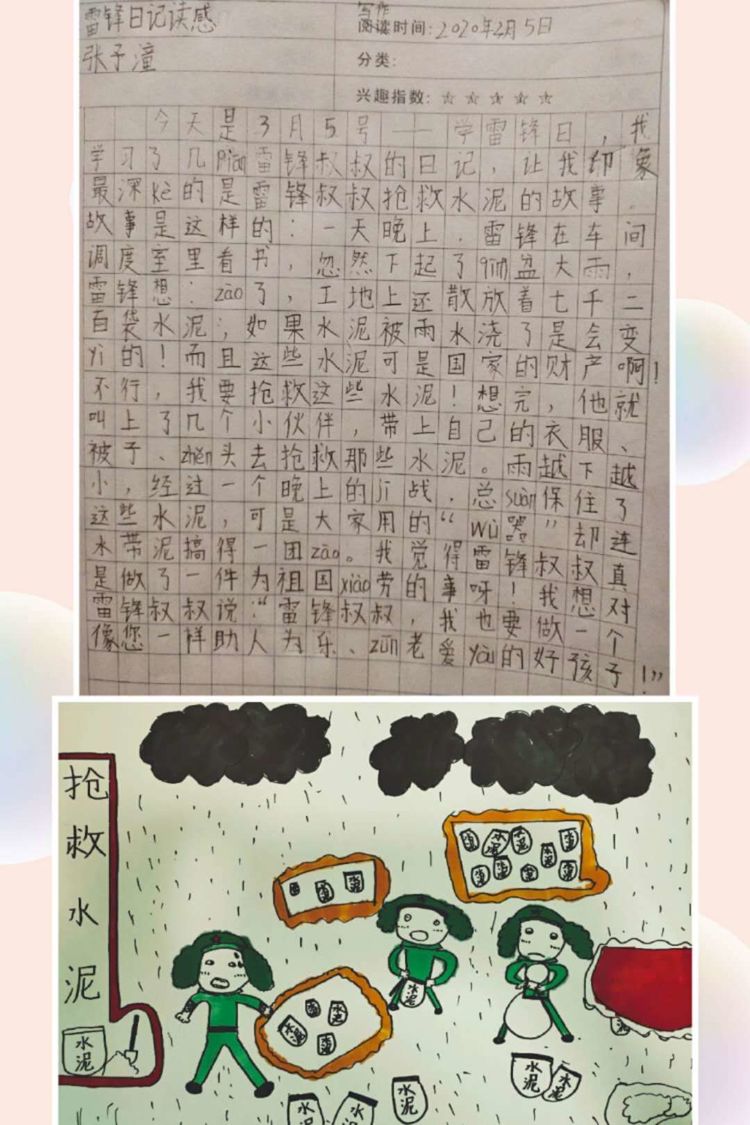 雷锋日记读感
张子潼
写作
阅读时间:2020年2月5日
分类:
兴趣指数:☆☆☆☆☆
今天是3月5号——学雷锋日,我
学习了几piān雷锋叔叔的日记,让我印象
最深kè的是雷锋叔叔抢救水泥的故事。
故事是这样的:一天晚上,雷锋在车间
调度室里看书,忽然下起了qīnɡ盆大雨,
雷锋想:zāo了,工地上还散放着七千二
百袋水泥;如果水泥被雨水浇了是会变
yì的!而且这些水泥可是国家的财产啊!
不行,我要抢救这些水泥!想完,他就
叫上了几个小伙伴,带上自己的衣服、
被子、zhěn头去抢救那些水泥。雨越下越
小,经过一个晚上的jī战,总suàn保住了
这些水泥,可是大家用的“wǔ器”却连
水带泥搞得一团zāo。我觉得雷锋叔叔真
是做了一件为祖国xiào劳的事呀!我想对
雷锋叔叔说:“雷锋叔叔,我也要做一个
像您一样助人为乐、zūn老爱yòu的好孩子!”
抢救水泥
水泥
水泥
水泥
水泥
水泥
水泥
水泥
水泥